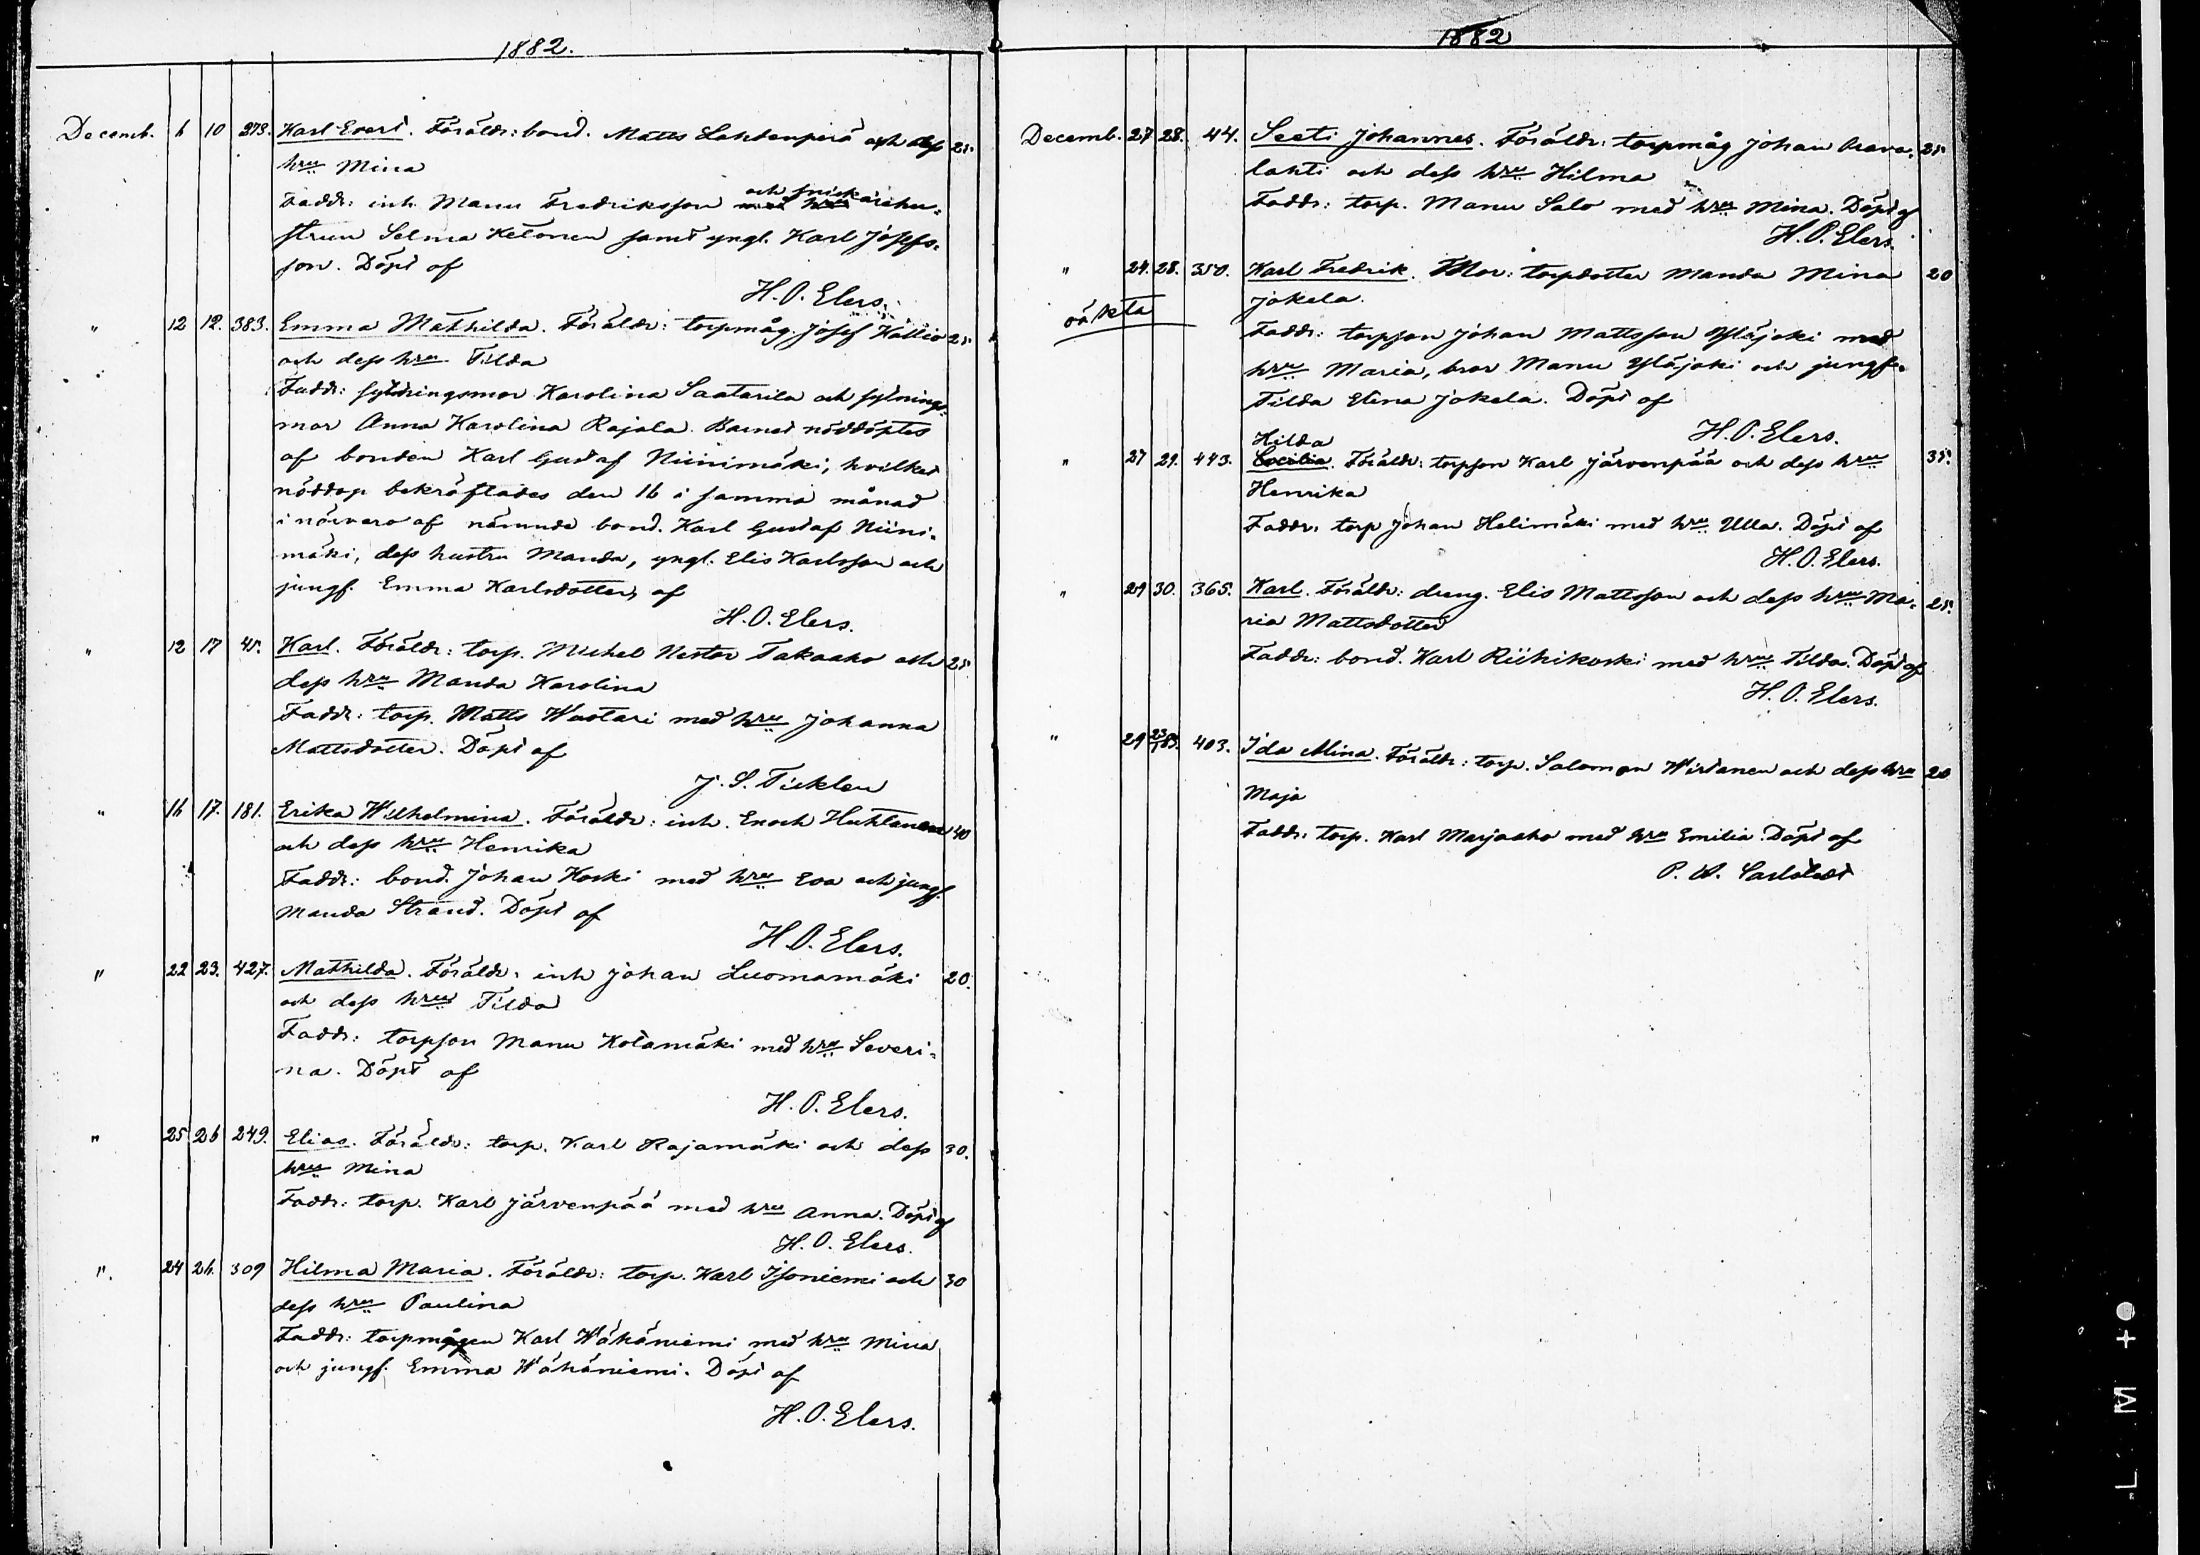 1882.
Decemb. 6 10 273. Karl Evert. Föräldr: bond. Matts Lahdenperä och dess 25.
hru Mina
Faddr: inh. Manu Fredriksson och snickarehu-
strun Selma Ketonen samt yngl. Karl Josefs-
son. Döpt af
H. O. Elers.
" 12 12. 383. Emma Mathilda. Föräldr: torpmåg. Josef Kallio 25
och dess hru Tilda
Faddr: sytningsmor Karolina Saatarila och sytnings-
mor Anna Karolina Rajala. Barnet nöddöptes
af bonden Karl Gustaf Niinimäki, hvilket
nöddop bekräftades den 16 i samma månad
i närvaro af nämnde bond. Karl Gustaf Niini-
mäki, dess hustru Manda, yngl. Elis Karlsson och
jungf. Emma Karlsdotter, af
H. O. Elers.
" 12 17 45. Karl. Föräldr: torp. Michel Nestor Takaaho och 25.
dess hru Manda Karolina
Faddr: torp. Matts Waatari med hru Johanna
Mattsdotter. Döpt af
J. S. Ticklen
" 16 17. 181. Erika Wilhelmina. Föräldr: inh. Enoch Huhtanen 40
och dess hru Henrika
Faddr: bond. Johan Koski med hru Eva och jungf.
Manda Strand. Döpt af
H. O. Elers.
" 22 23. 427. Mathilda. Föräldr: inh Johan Luomamäki 20.
och dess hru Tilda
Faddr: torpson Manu Kotamäki med hru Severi-
na. Döpt af
H. O. Elers.
" 25 26 249. Elias. Föräldr: torp. Karl Rajamäki och dess 30.
hru Mina
Faddr: torp. Karl Järvenpää med hru Anna. Döpt af
H. O. Elers.
" 24 26. 309 Hilma Maria. Föräldr: torp. Karl Isoniemi och 30
dess hru Paulina
Faddr: torpmågen Karl Wähäniemi med hru Mina
och jungf. Emma Wähäniemi. Döpt af
H. O. Elers.
1882
Decemb. 27 28. 44. Seeti Johannes. Föräldr: torpmåg Johan Arava- 25
lahti och dess hru Hilma
Faddr: torp. Manu Salo med hru Mina. Döpt af
H. O. Elers.
" 24. 28. 350. Karl Fredrik. Mor: torpdotter Manda Mina 20
oäkta Jokela.
Faddr: torpson Johan Mattsson Yläjoki med
hru Maria, bror Manu Yläjoki och jungfr.
Tilda Stina Jokela. Döpt af
H. O. Elers.
Hilda
" 27 29. 443. Cecilia. Föräldr: torpson Karl Järvenpää och dess hru 35.
Henrika
Faddr: torp Johan Halimäki med hru Ulla. Döpt af
H. O. Elers.
" 29 30. 365. Karl. Föräldr: dreng. Elis Mattsson och dess hru Ma- 25.
ria Mattsdotter
Faddr: bond. Karl Riihikoski med hru Tilda. Döpt af
H. O. Elers.
" 29 23/1 83. 403. Ida Mina. Föräldr: torp. Salomon Wirtanen och dess hru 20
Maja
Faddr: torp. Karl Marjaaho med hru Emilia. Döpt af
P. W. Carlstedt
L M